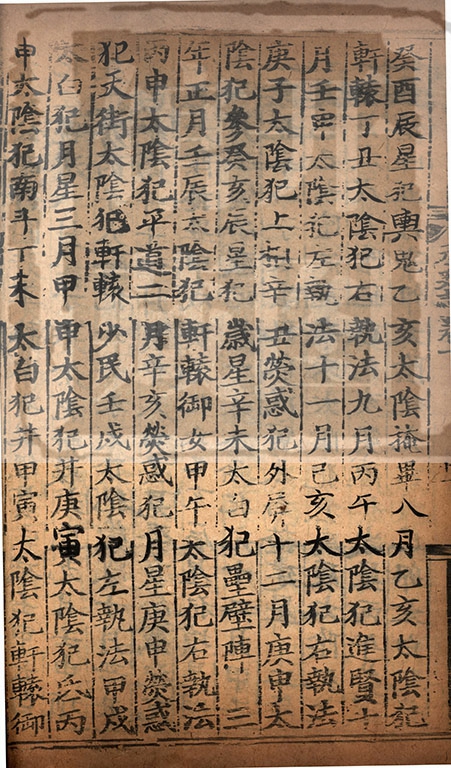 癸酉辰星犯輿鬼乙亥太陰掩畢八月乙亥太陰犯
軒轅丁丑太陰犯右執法九月丙午太陰犯進賢十
月壬申太陰犯左執法十一月己亥太陰犯右執法
庚子太陰犯上相辛丑熒惑犯外屏十二月庚申太
陰犯參癸亥辰星犯歲星辛未太白犯壘壁陣三
年正月壬辰太陰犯軒轅御女甲午太陰犯右執法
丙申太陰犯平道二月辛亥熒惑犯月星庚申熒惑
犯天街太陰犯軒轅少民壬戌太陰犯左執法甲戌
太白犯月星三月甲申太陰犯井庚寅太陰犯氐丙
申太陰犯南斗丁未太白犯井甲寅太陰犯軒轅御